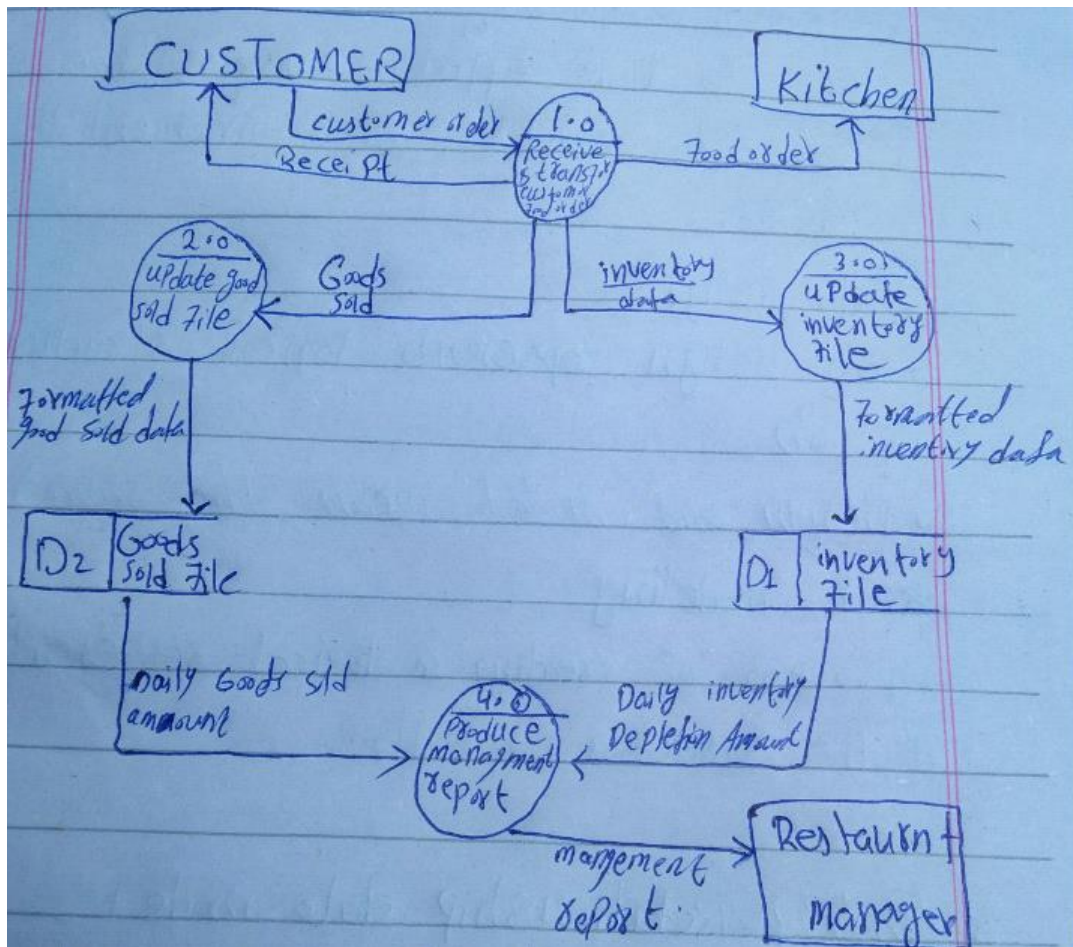 CUSTOMER
Kitchen
customer order
Receipt
1.0
Receive
customer
Food order
2.0
update good
sold File
Goods
sold
inventory
data
3.0
update
inventory
File
Formatted
good sold data
Foramtted
inventory data
D2
Goods
sold File
D1
inventory
File
Daily Goods sold
ammount
4.0
produce
managment
report
Daily inventory
Depletion Amount
mangement
report.
Restaurnt
manager